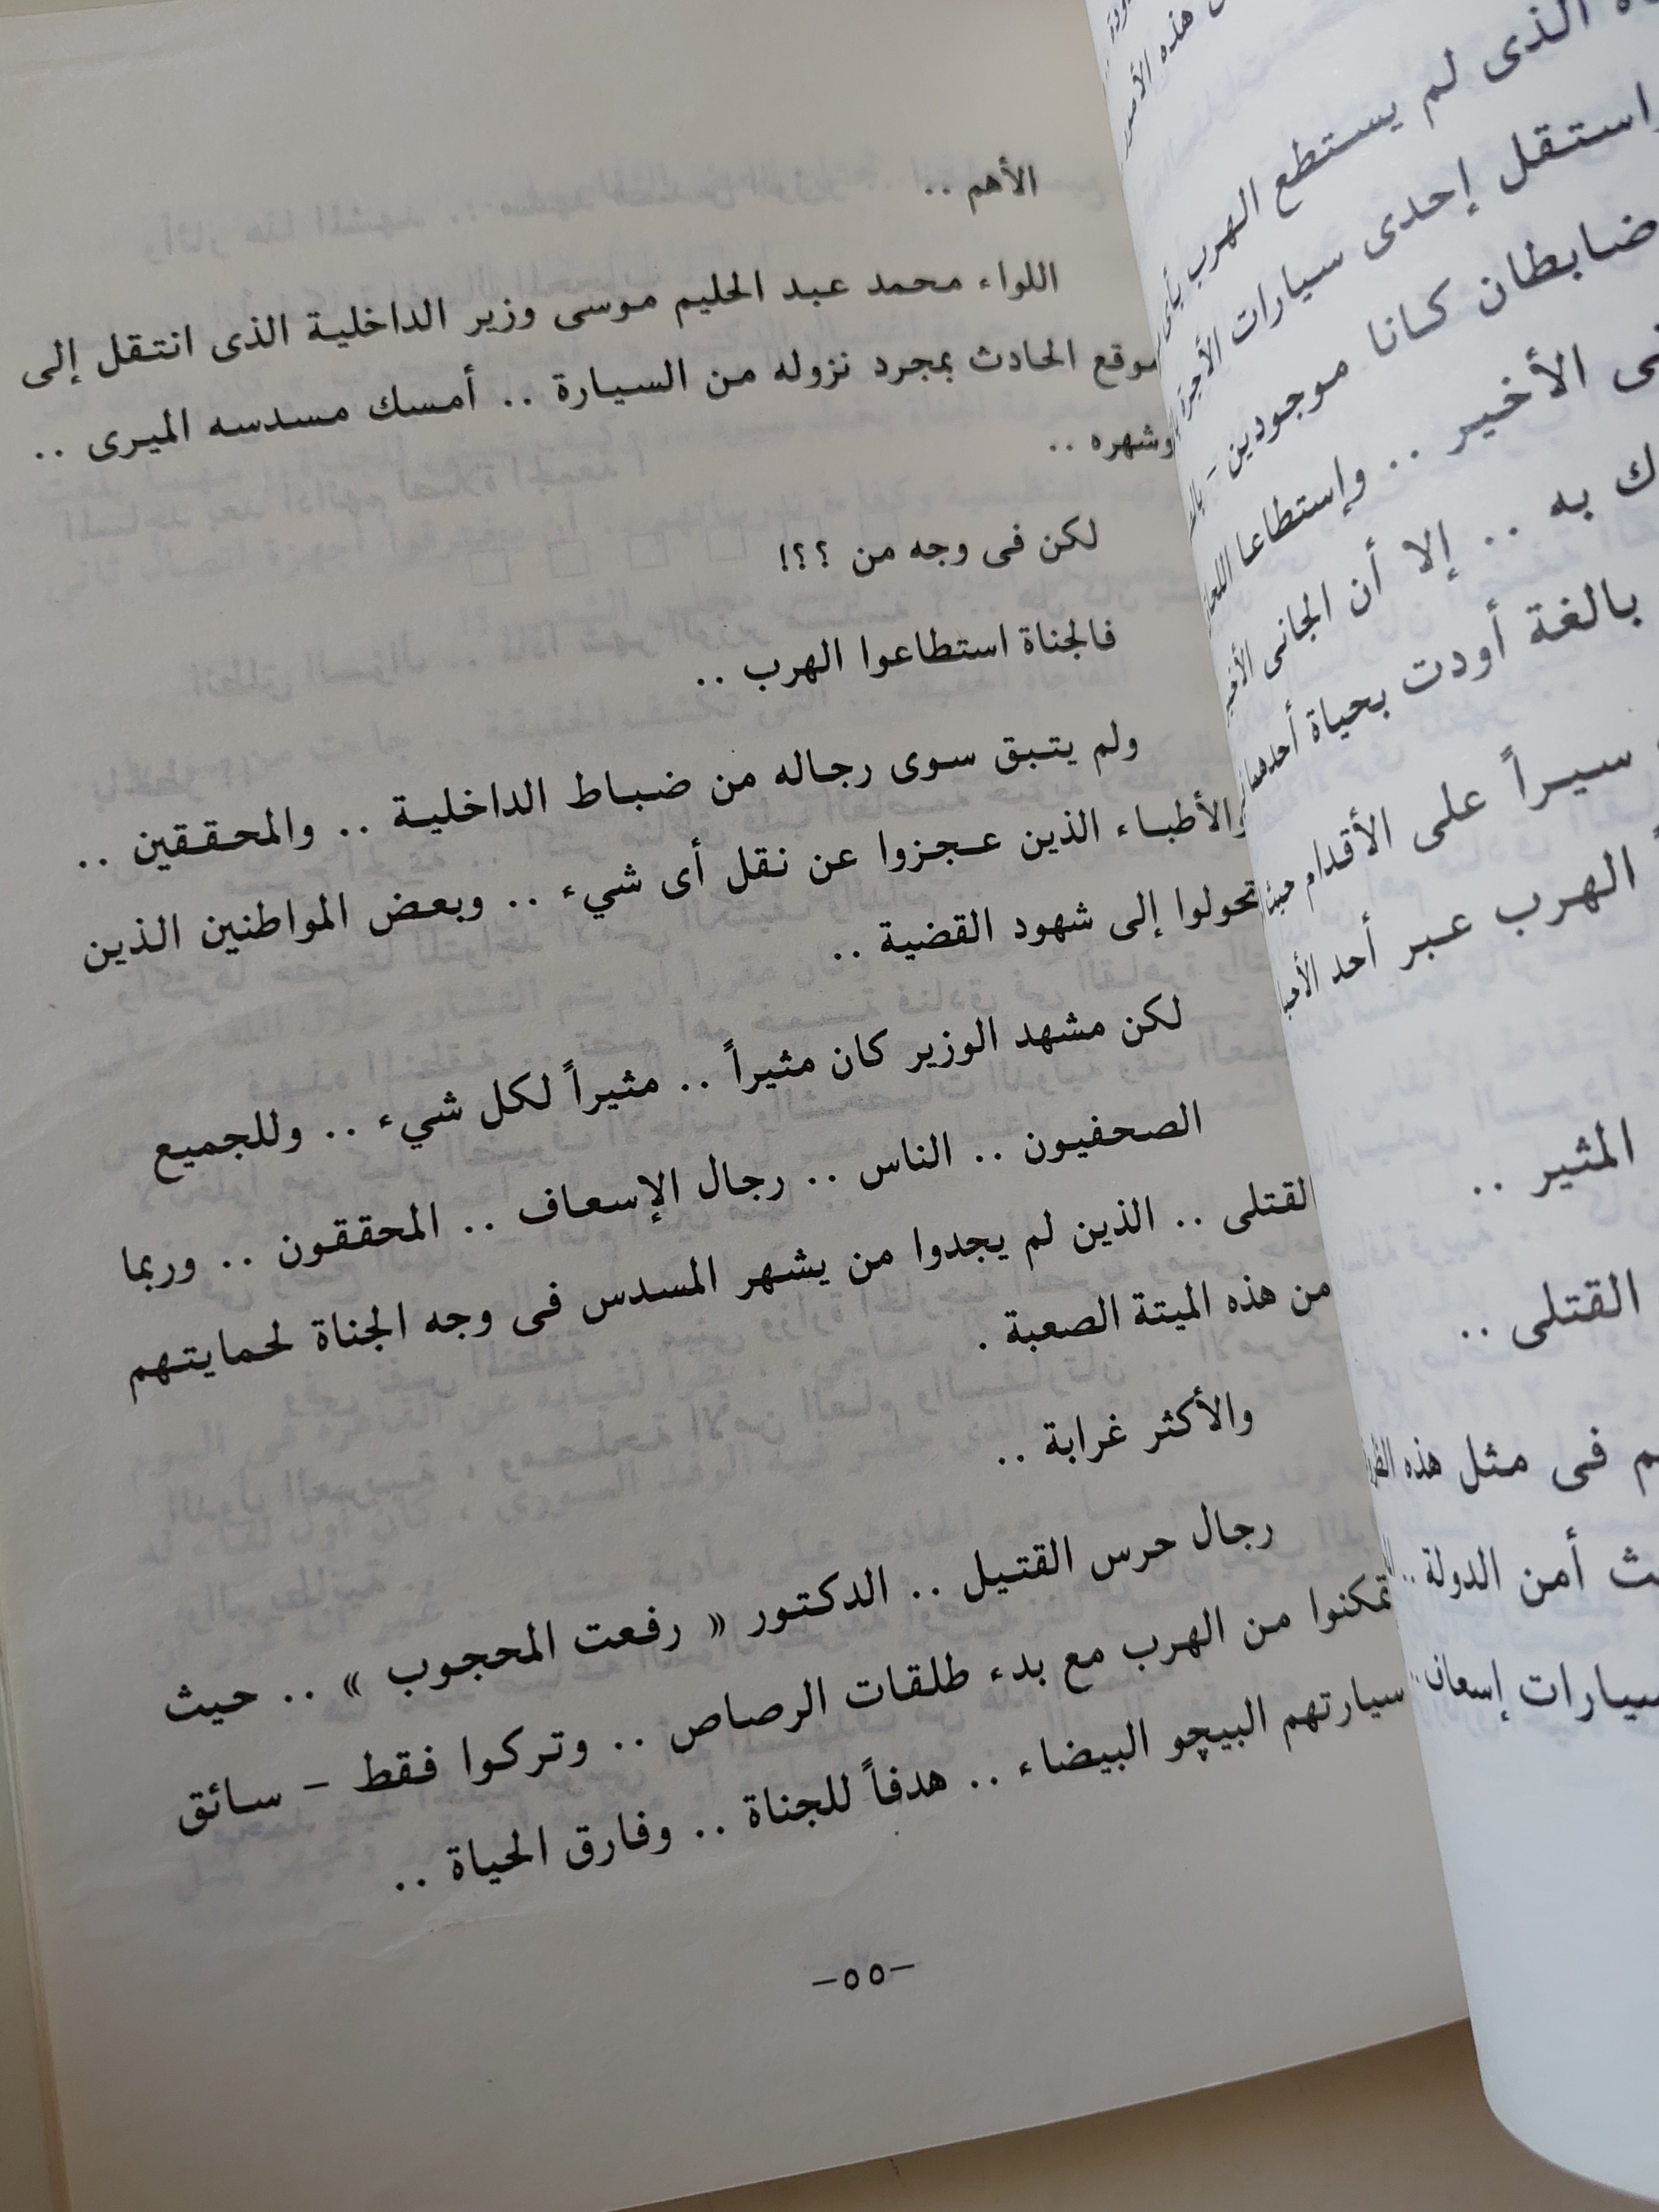 هذه
الذى لم يستطع الهرب
استقل إحدى سيارات الأجرة
ضابطان كانا موجودين -
الأخير .. وإستطاعا
به .. إلا أن الجانى
بالغة أودت بحياة أحدهما
سيراً على الأقدام
الهرب عبر أحد
المثير ..
القتلى ..
فى مثل هذه
أمن الدولة ..
سيارات إسعاف ..
الأهم ..
اللواء محمد عبد الحليم موسى وزير الداخلية الذى انتقل إلى
موقع الحادث بمجرد نزوله من السيارة .. أمسك مسدسه الميرى ..
وشهره ..
لكن فى وجه من ؟؟!
فالجناة استطاعوا الهرب ..
ولم يتبق سوى رجاله من ضباط الداخلية .. والمحققين ..
والأطباء الذين عجزوا عن نقل أى شيء .. وبعض المواطنين الذين
تحولوا إلى شهود القضية ..
لكن مشهد الوزير كان مثيراً .. مثيراً لكل شيء .. وللجميع
الصحفيون .. الناس .. رجال الإسعاف .. المحققون .. وربما
القتلى .. الذين لم يجدوا من يشهر المسدس فى وجه الجناة لحمايتهم
من هذه الميتة الصعبة .
والأكثر غرابة ..
رجال حرس القتيل .. الدكتور « رفعت المحجوب » .. حيث
تمكنوا من الهرب مع بدء طلقات الرصاص .. وتركوا فقط - سائق
سيارتهم البيچو البيضاء .. هدفاً للجناة .. وفارق الحياة ..
-٥٥-